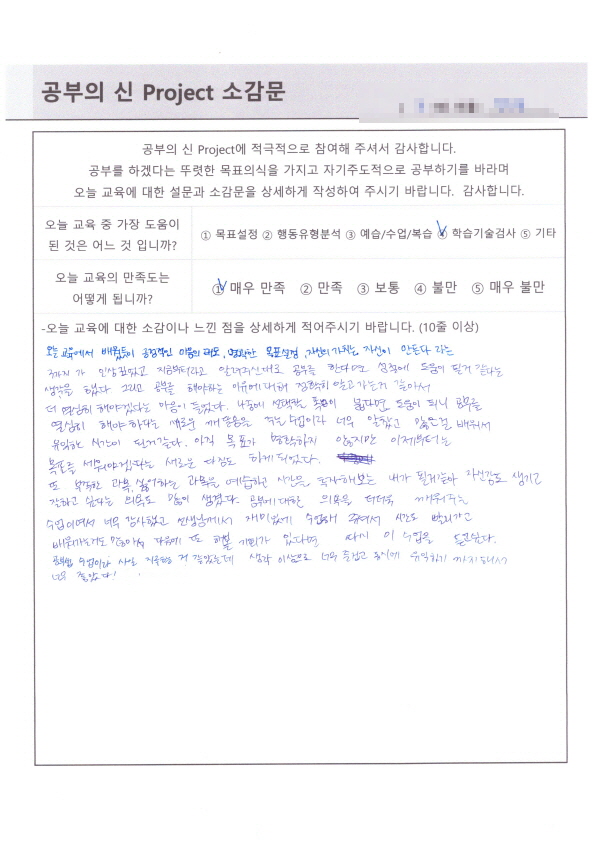 공부의 신 Project 소감문
공부의 신 Project에 적극적으로 참여해 주셔서 감사합니다.
공부를 하겠다는 뚜렷한 목표의식을 가지고 자기주도적으로 공부하기를 바라며
오늘 교육에 대한 설문과 소감문을 상세하게 작성하여 주시기 바랍니다. 감사합니다.
오늘 교육 중 가장 도움이
된 것은 어느 것 입니까?
① 목표설정 ② 행동유형분석 ③ 예습/수업/복습 ④ 학습기술검사 ⑤ 기타
오늘 교육의 만족도는
어떻게 됩니까?
① 매우 만족 ② 만족 ③ 보통 ④ 불만 ⑤ 매우 불만
-오늘 교육에 대한 소감이나 느낀 점을 상세하게 적어주시기 바랍니다. (10줄 이상)
오늘 교육에서 배웠듯이 긍정적인 마음의 태도, 명확한 목표설정, 자신의 가치는 자신이 만든다 라는
3가지가 인상깊었고 지금부터라도 알려주신대로 공부를 한다면 성적에 도움이 될거 같다는
생각을 했다. 그리고 공부를 해야하는 이유에 대해 정확히 알고 가는거 같아서
더 열심히 해야겠다는 마음이 들었다. 나중에 선택할 폭이 넓다면 도움이 되니 공부를
열심히 해야 하다는 새로운 깨달음을 주는 수업이라 너무 알찼고 많은걸 배워서
유익한 시간이 된거같다. 아직 목표가 명확하지 않지만 이제부터는
목표를 세워야겠다는 새로운 다짐도 하게 되었다.
또 부족한 과목, 싫어하는 과목을 예습하고 시간을 투자해보는 내가 될거같아 자신감도 생기고
잘하고 싶다는 의욕도 많이 생겼다. 공부에 대한 의욕을 더더욱 깨워주는
수업이여서 너무 감사했고 선생님께서 재미있게 수업해 주셔서 시간도 빨리가고
배운가는거도 많아서 다음에 또 해볼 기회가 있다면 다시 이 수업을 듣고싶다.
수업이라 사실 지루할 거 같았는데 생각 이상으로 너무 즐겁고 동시에 유익하기 까지 해서
너무 좋았다!